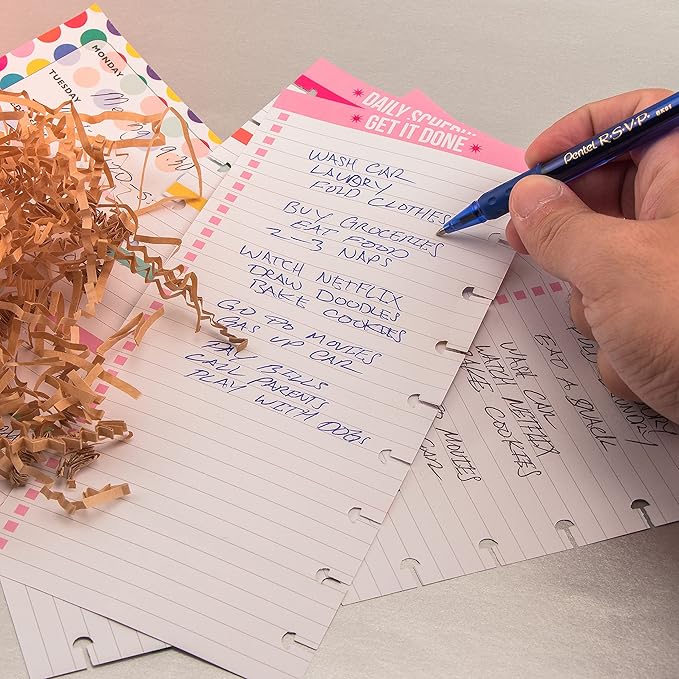 MONDAY
TUESDAY
DAILY SCHEDU
GET IT DONE
WASH CAR
LAUNDRY
FOLD CLOTHES
BUY GROCERIES
EAT FOOD
2-3 NAPS
WATCH NETFLIX
DRAW DOODLES
BAKE COOKIES
GO TO MOVIES
GAS UP CAR
PAY BILLS
CALL PARENTS
PLAY WITH DOGS
Pentel R·S·V·P® BK91
EAT A SNACK
WASH CAR
WATCH NETFLIX
COOKIES
MOVIES
CAR